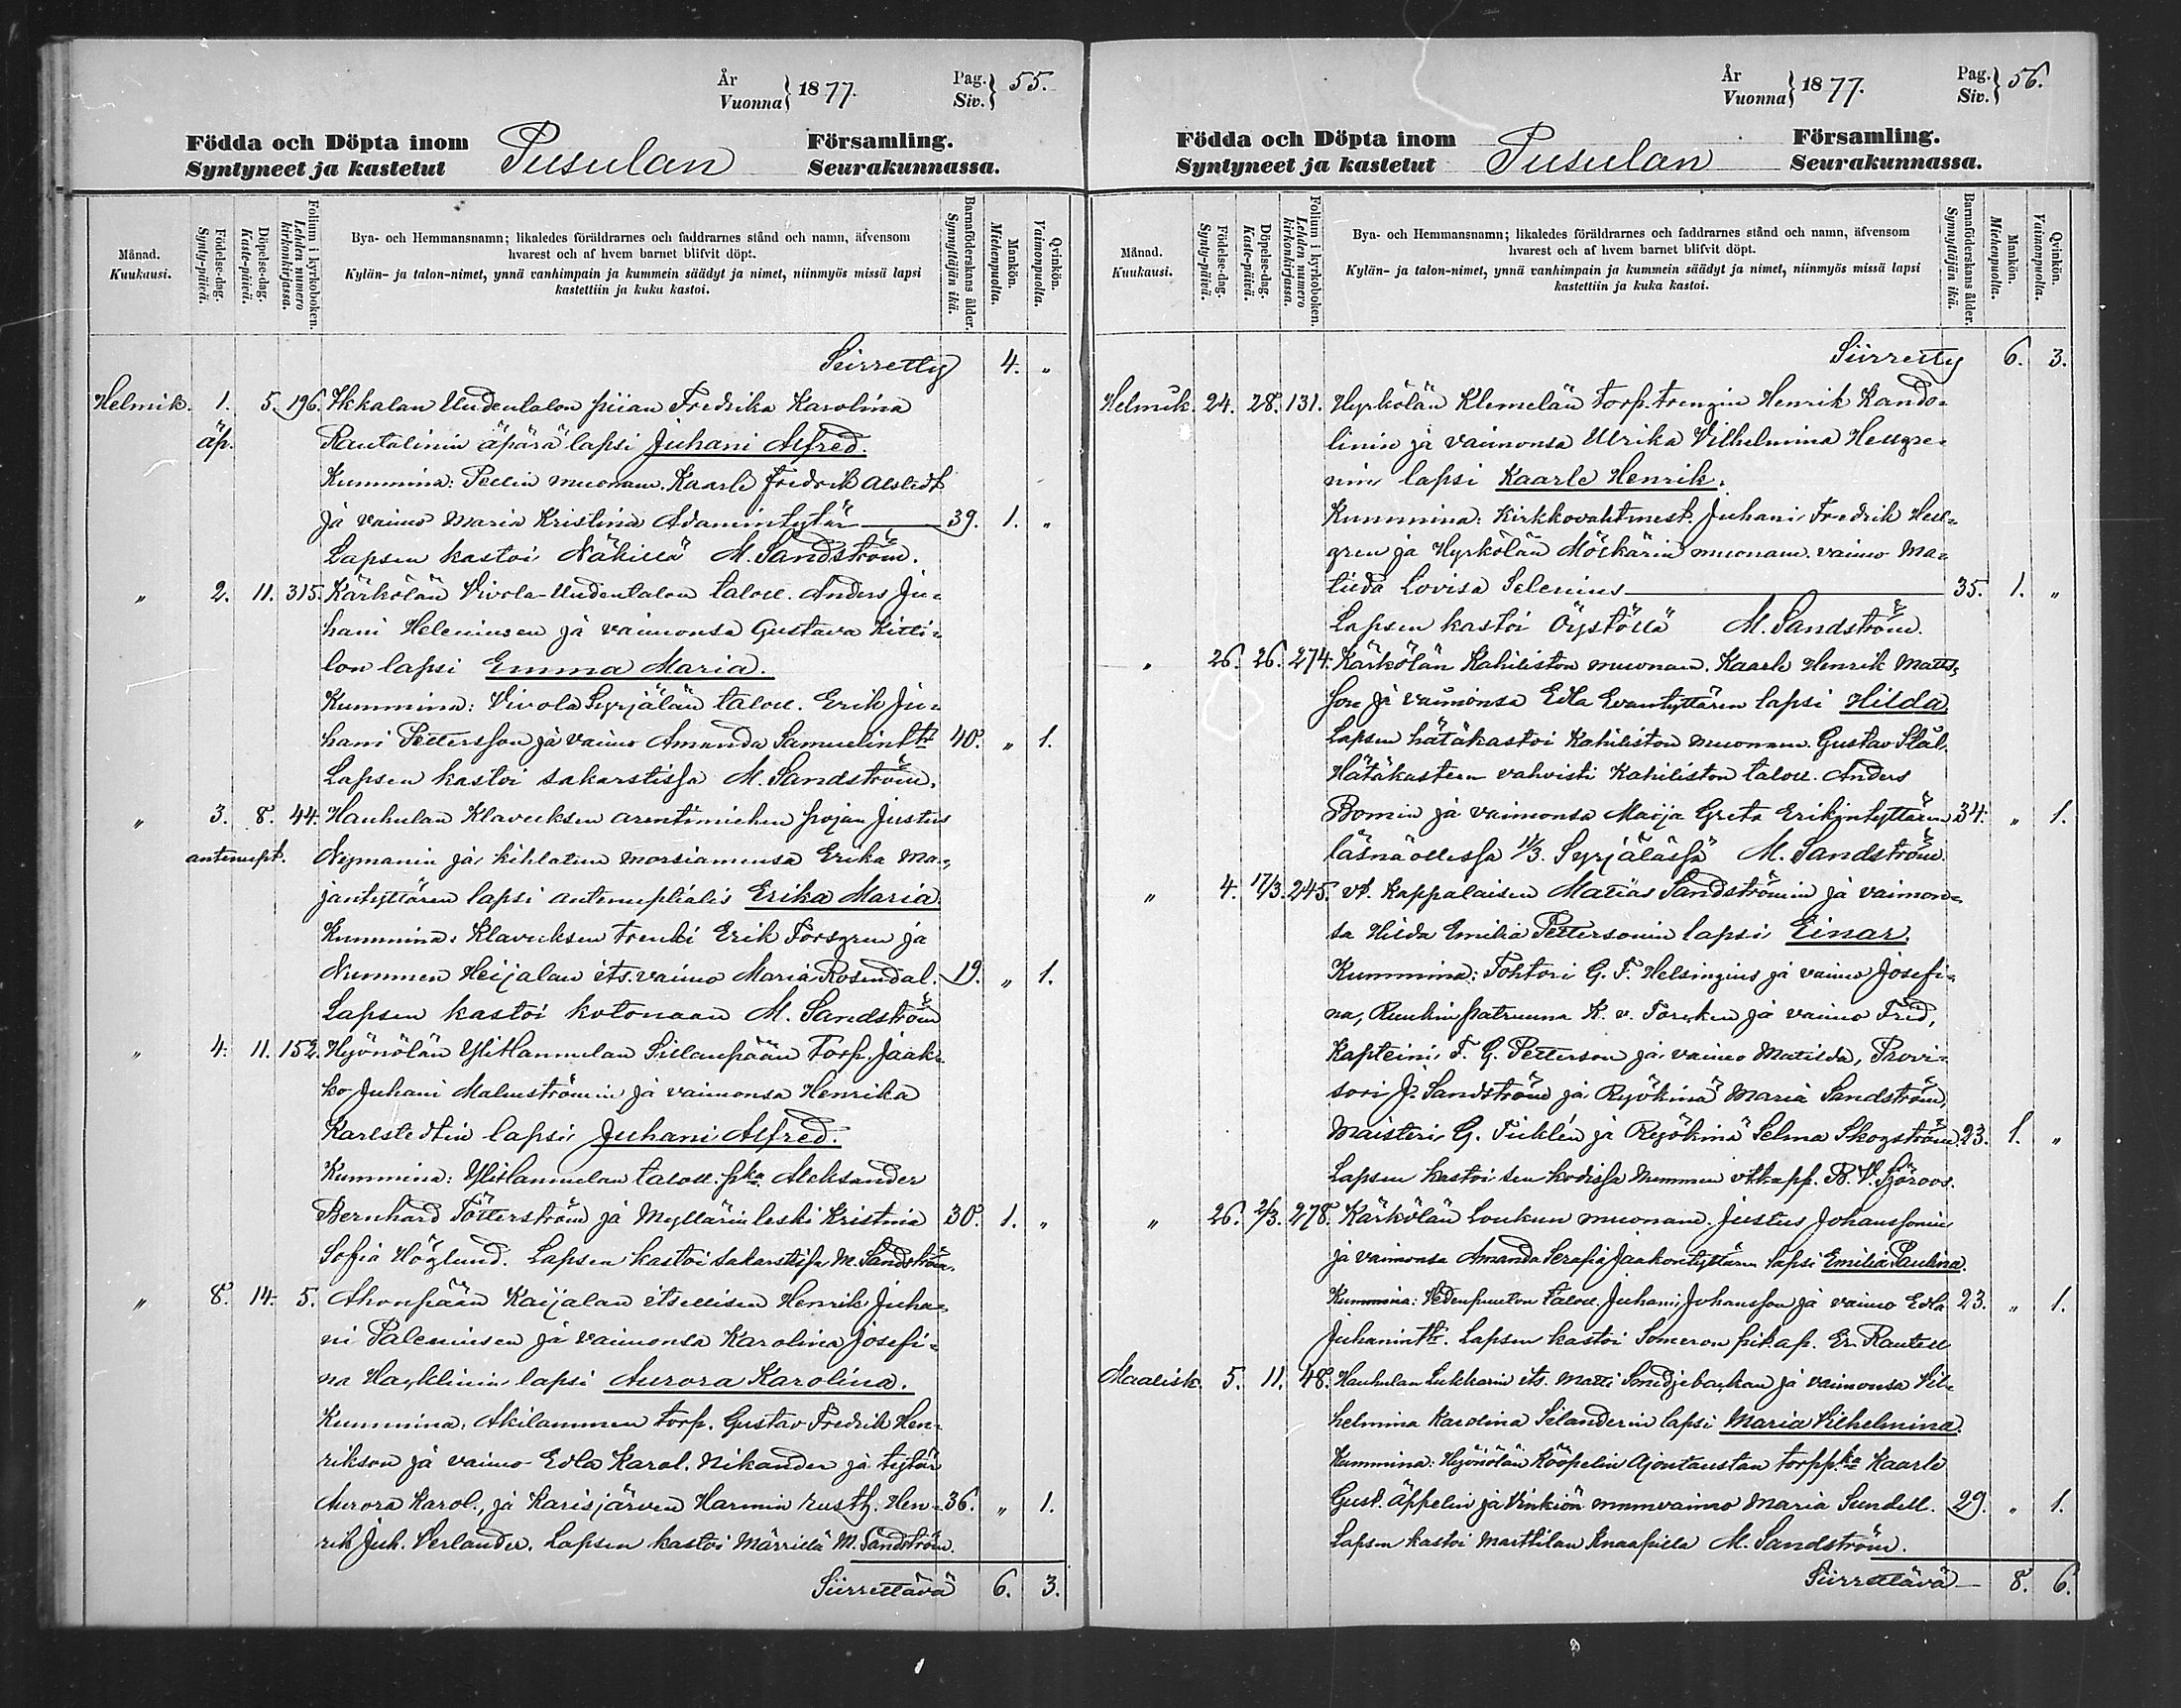 År
Vuonna } 1877.
Pag.
Siv. } 55.
Födda och Döpta inom Pusulan Församling.
Syntyneet ja kastetut Seurakunnassa.
Månad.
Kuukausi.
Födelse-dag.
Synty-päivä.
Döpelse-dag.
Kaste-päivä.
Folium i kyrkoboken.
Lehden numero kirkonkirjassa.
Bya- och Hemmansnamn; likaledes föräldrarnes och faddrarnes stånd och namn, äfvensom
hvarest och af hvem barnet blifvit döpt.
Kylän- ja talon-nimet, ynnä vanhimpain ja kummein säädyt ja nimet, niinmyös missä lapsi
kastettiin ja kuka kastoi.
Barnaföderskans ålder.
Synnyttäjän ikä.
Mankön.
Miehenpuolta.
Qvinkön.
Vaimonpuolta.
Siirretty 4. "
Helmik. 1. 5. 196. Ikkalan Uudentalon piian Fredrika Karolina
äp. Rautalinin äpärä lapsi Juhani Alfred.
Kummina: Pellin muonam. Kaarle Fredrik Alstedt
ja vaimo Maria Kristina Adamintytär 39. 1. "
Lapsen kastoi Näkillä M. Sandström.
" 2. 11. 315. Kärkölän Vivola-Uudentalon taloll. Anders Ju-
hani Heleniusen ja vaimonsa Gustava Kitti-
lon lapsi Emma Maria.
Kummina: Vivola Syrjälän taloll. Erik Ju-
hani Pettersson ja vaimo Amanda Samuelintr 40. " 1.
Lapsen kastoi sakarstissa M. Sandström.
" 3. 8. 44. Hauhulan Klaveuksen arentimiehen pojan Justus
antenupt. Nymanin ja kihlatun morsiamensa Erika Ma-
jantyttären lapsi antenuptialis Erika Maria.
Kummina: Klaveuksen trenki Erik Forsgren ja
Nummen Heijalan its. vaimo Maria Rosendal. 19. " 1.
Lapsen kastoi kotonaan M. Sandström
" 4. 11. 152. Hyönölän YliHannulan Sillanpään Torp. Jaak-
ko Juhani Malmströmin ja vaimonsa Henrika
Karlstedtin lapsi Juhani Alfred.
Kummina: YliHannulan taloll. pka Aleksander
Bernhard Tötterström ja Myllärin leski Kristina 30. 1. "
Sofia Höglund. Lapsen kastoi sakarstissa M. Sandström.
" 8. 14. 5. Ahonpään Kaijalan itsellisen Henrik Juha-
ni Paleniusen ja vaimonsa Karolina Josefi-
na Hacklinin lapsi Aurora Karolina.
Kummina: Akilammen torp. Gustav Fredrik Hen-
rikson ja vaimo Edla Karol. Nikander ja tytär
Aurora Karol., ja Karisjärven Harmin rusth. Hen- 36. " 1.
rik Juh. Verlander. Lapsen kastoi Märrillä M. Sandström.
Siirrettävä 6. 3.
År
Vuonna } 1877.
Pag.
Siv. } 56.
Födda och Döpta inom Pusulan Församling.
Syntyneet ja kastetut Seurakunnassa.
Månad.
Kuukausi.
Födelse-dag.
Synty-päivä.
Döpelse-dag.
Kaste-päivä.
Folium i kyrkoboken.
Lehden numero kirkonkirjassa.
Bya- och Hemmansnamn; likaledes föräldrarnes och faddrarnes stånd och namn, äfvensom
hvarest och af hvem barnet blifvit döpt.
Kylän- ja talon-nimet, ynnä vanhimpain ja kummein säädyt ja nimet, niinmyös missä lapsi
kastettiin ja kuka kastoi.
Barnaföderskans ålder.
Synnyttäjän ikä.
Mankön.
Miehenpuolta.
Qvinkön.
Vaimonpuolta.
Siirretty 6. 3.
Helmik. 24. 28. 131. Hyrkölän Klemelän torp. trengin Henrik Kando-
linin ja vaimonsa Ulrika Vilhelmina Hellgre-
nin lapsi Kaarle Henrik.
Kummina: Kirkkovahtmest. Juhani Fredrik Hell-
gren ja Hyrkölän Mölkärin muonam. vaimo Ma-
tilda Lovisa Selenius 35. 1. "
Lapsen kastoi Öystöllä M. Sandström.
" 26. 26. 274. Kärkölän Kahiliston muonam. Kaarle Henrik Matts-
son ja vaimonsa Edla Evantyttären lapsi Hilda.
Lapsen hätäkastoi Kahiliston muonam. Gustav Stål.
Hätäkasteen vahvisti Kahiliston taloll. Anders
Bomin ja vaimonsa Maija Greta Erikintyttären 34. " 1.
läsnäollessa 11/3. Syrjälässä M. Sandström.
" 4. 17/3. 245. vt. Kappalaisen Matias Sandströmin ja vaimon-
sa Hilda Emilia Pettersonin lapsi Einar.
Kummina: Tohtori G. F. Helsingius ja vaimo Josefi-
na, Ruukin patruuna K. v. Torcken ja vaimo Fred,
Kapteini F. G. Petterson ja vaimo Matilda, Provi-
sori J. Sandström ja Ryökinä Maria Sandström,
Maisteri G. Ticklén ja Ryökinä Selma Skogström. 23. 1. "
Lapsen kastoi sen kodissa Nummen vt kapp. B. V. Sjöroos.
" 26. 2/3. 278. Kärkölän Loukun muonam. Justus Johanssonin
ja vaimonsa Amanda Serafia Jaakontyttären lapsi Emilia Paulina.
Kummina: Vedenpuuton taloll. Juhani Johansson ja vaimo Edla 23. " 1.
Juhanintr. Lapsen kastoi Someron pit. ap. Er. Rantell
Maalisk. 5. 11. 48. Hauhulan Lukkarin its. Matti Smedjebackan ja vaimonsa Vil-
helmina Karolina Silanderin lapsi Maria Vilhelmina.
Kummina: Hyönölän Kööpelin Ajontaustan torppka Kaarle
Gust. Äppelin ja Vinkiön mmmvaimo Maria Sundell. 29. " 1.
Lapsen kastoi Marttilan Knaapilla M. Sandström.
Siirrettävä 8. 6.